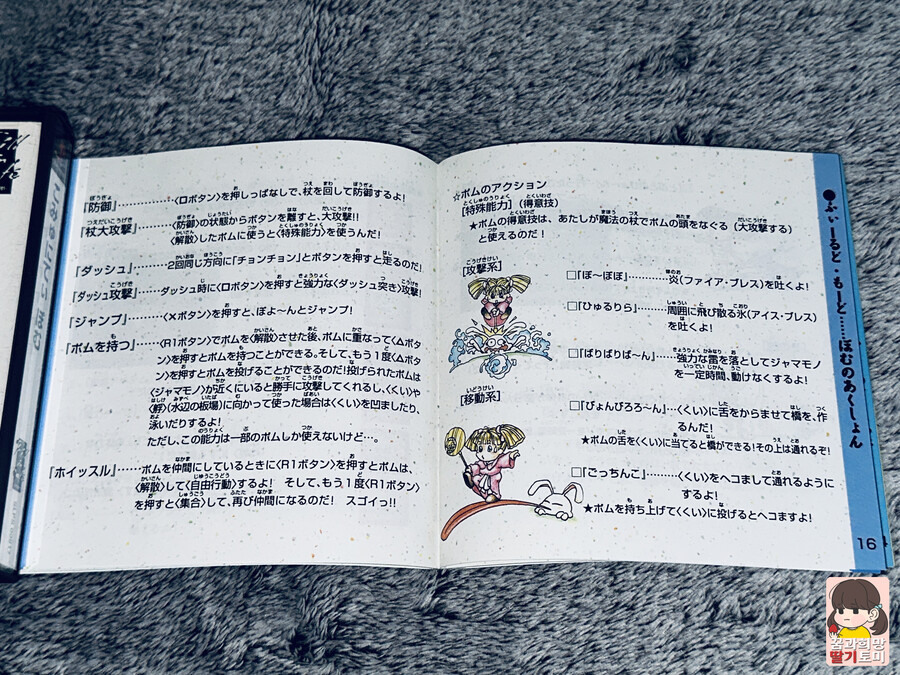 「防御」…………〈□ボタン〉を押しっぱなしで、杖を回して防御するよ!
「杖大攻撃」……〈防御〉の状態からボタンを離すと、大攻撃!!
〈解散〉したボムに使うと〈特殊能力〉を使うんだ!
「ダッシュ」………2回同じ方向に「チョンチョン」とボタンを押すと走るのだ!
「ダッシュ攻撃」……ダッシュ時に〈□ボタン〉を押すと強力な〈ダッシュ突き〉攻撃!
「ジャンプ」………〈×ボタン〉を押すと、ぽよ〜んとジャンプ!
「ボムを持つ」……〈R1ボタン〉でボムを〈解散〉させた後、ボムに重なって〈△ボタ
ン〉を押すとボムを持つことができる。そして、もう1度〈△ボタ
ン〉を押すとボムを投げることができるのだ!投げられたボムは
〈ジャマモノ〉が近くにいると勝手に攻撃してくれるし、〈くい〉や
〈艀〉(水辺の板場)に向かって使った場合は〈くい〉を凹ましたり、
泳いだりするよ!
ただし、この能力は一部のボムしか使えないけど…。
「ホイッスル」……ボムを仲間にしているときに〈R1ボタン〉を押すとボムは、
〈解散〉して〈自由行動〉するよ! そして、もう1度〈R1ボタン〉
を押すと〈集合〉して、再び仲間になるのだ! スゴイっ!!
☆ボムのアクション
[特殊能力](得意技)
★ボムの得意技は、あたしが魔法の杖でボムの頭をなぐる(大攻撃する)
と使えるのだ!
[攻撃系]
□「ぼ〜ぼぼ」………炎(ファイア・ブレス)を吐くよ!
□「ひゅるりら」……周囲に飛び散る氷(アイス・ブレス)
を吐くよ!
□「ばりばりば〜ん」……強力な雷を落としてジャマモノ
を一定時間、動けなくするよ!
[移動系]
□「びょんびろろ〜ん」…〈くい〉に舌をからませて橋を、作
るんだ!
★ボムの舌を〈くい〉に当てると橋ができる!その上は通れるぞ!
□「ごっちんこ」………〈くい〉をヘコまして通れるように
するよ!
★ボムを持ち上げて〈くい〉に投げるとヘコますよ!
●ふぃーるど・もーど……ぼむのあくしょん
16
꿈과희망
딸기토미